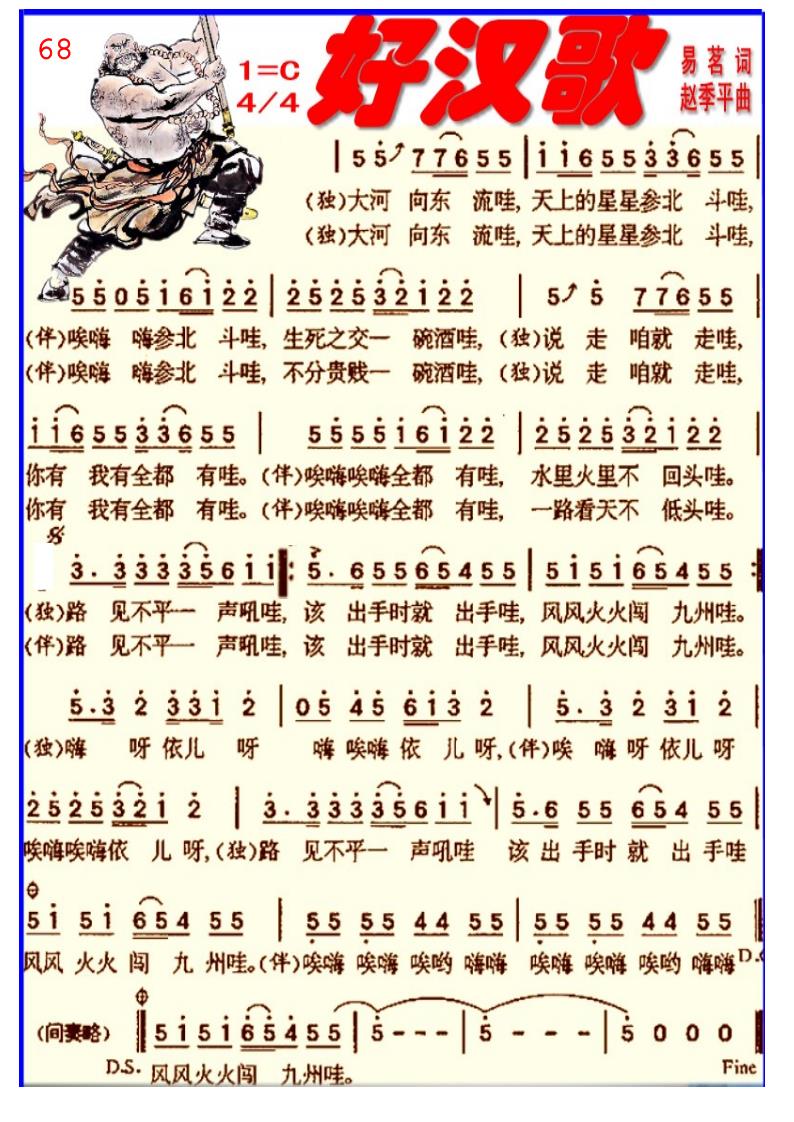 68
1=C
4/4
好汉歌
易茗词
赵季平曲
5 5 7 7 6 5 5 | 1 1 6 5 5 3 3 6 5 5
(独)大河 向东 流哇, 天上的星星参北 斗哇,
(独)大河 向东 流哇, 天上的星星参北 斗哇,
5 5 0 5 1 6 1 2 2 | 2 5 2 5 3 2 1 2 2 | 5 5 7 7 6 5 5
(伴)唉嗨 嗨参北 斗哇, 生死之交一 碗酒哇, (独)说 走 咱就 走哇,
(伴)唉嗨 嗨参北 斗哇, 不分贵贱一 碗酒哇, (独)说 走 咱就 走哇,
1 1 6 5 5 3 3 6 5 5 | 5 5 5 5 1 6 1 2 2 | 2 5 2 5 3 2 1 2 2
你有 我有全都 有哇。(伴)唉嗨唉嗨全都 有哇, 水里火里不 回头哇。
你有 我有全都 有哇。(伴)唉嗨唉嗨全都 有哇, 一路看天不 低头哇。
3 . 3 3 3 3 5 6 1 1 : 5 . 6 5 5 6 5 4 5 5 | 5 1 5 1 6 5 4 5 5 :
(独)路 见不平一 声吼哇, 该 出手时就 出手哇, 风风火火闯 九州哇。
(伴)路 见不平一 声吼哇, 该 出手时就 出手哇, 风风火火闯 九州哇。
5 . 3 2 3 3 1 2 | 0 5 4 5 6 1 3 2 | 5 . 3 2 3 1 2
(独)嗨 呀依儿 呀 嗨 唉嗨 依 儿 呀,(伴)唉 嗨 呀 依儿 呀
2 5 2 5 3 2 1 2 | 3 . 3 3 3 3 5 6 1 1 | 5 . 6 5 5 6 5 4 5 5
唉嗨唉嗨依 儿 呀,(独)路 见不平一 声吼哇 该 出 手时 就 出 手哇
5 1 5 1 6 5 4 5 5 | 5 5 5 5 4 4 5 5 | 5 5 5 5 4 4 5 5
风风 火火 闯 九 州哇。(伴)唉嗨 唉嗨 唉哟 嗨嗨 唉嗨 唉嗨 唉哟 嗨嗨
(间奏略) 5 1 5 1 6 5 4 5 5 | 5 - - - | 5 - - - | 5 0 0 0
D.S. 风风火火闯 九州哇。 Fine